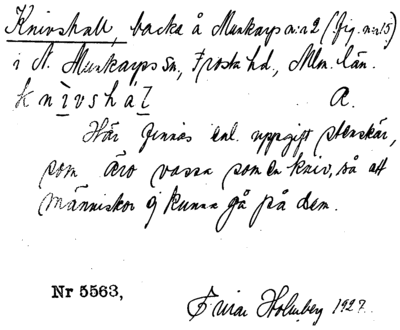 Knivshall, backa å Munkarps n:r 2 (fig. n:r 15)
i N. Munkarps sn, Frosta hd, Mlm. län.
knivshal A.
Här finnas enl. uppgift stenskär,
som äro vassa som en kniv, så att
människor ej kunna gå på dem.
Nr 5563,
Einar Holmberg 1927.